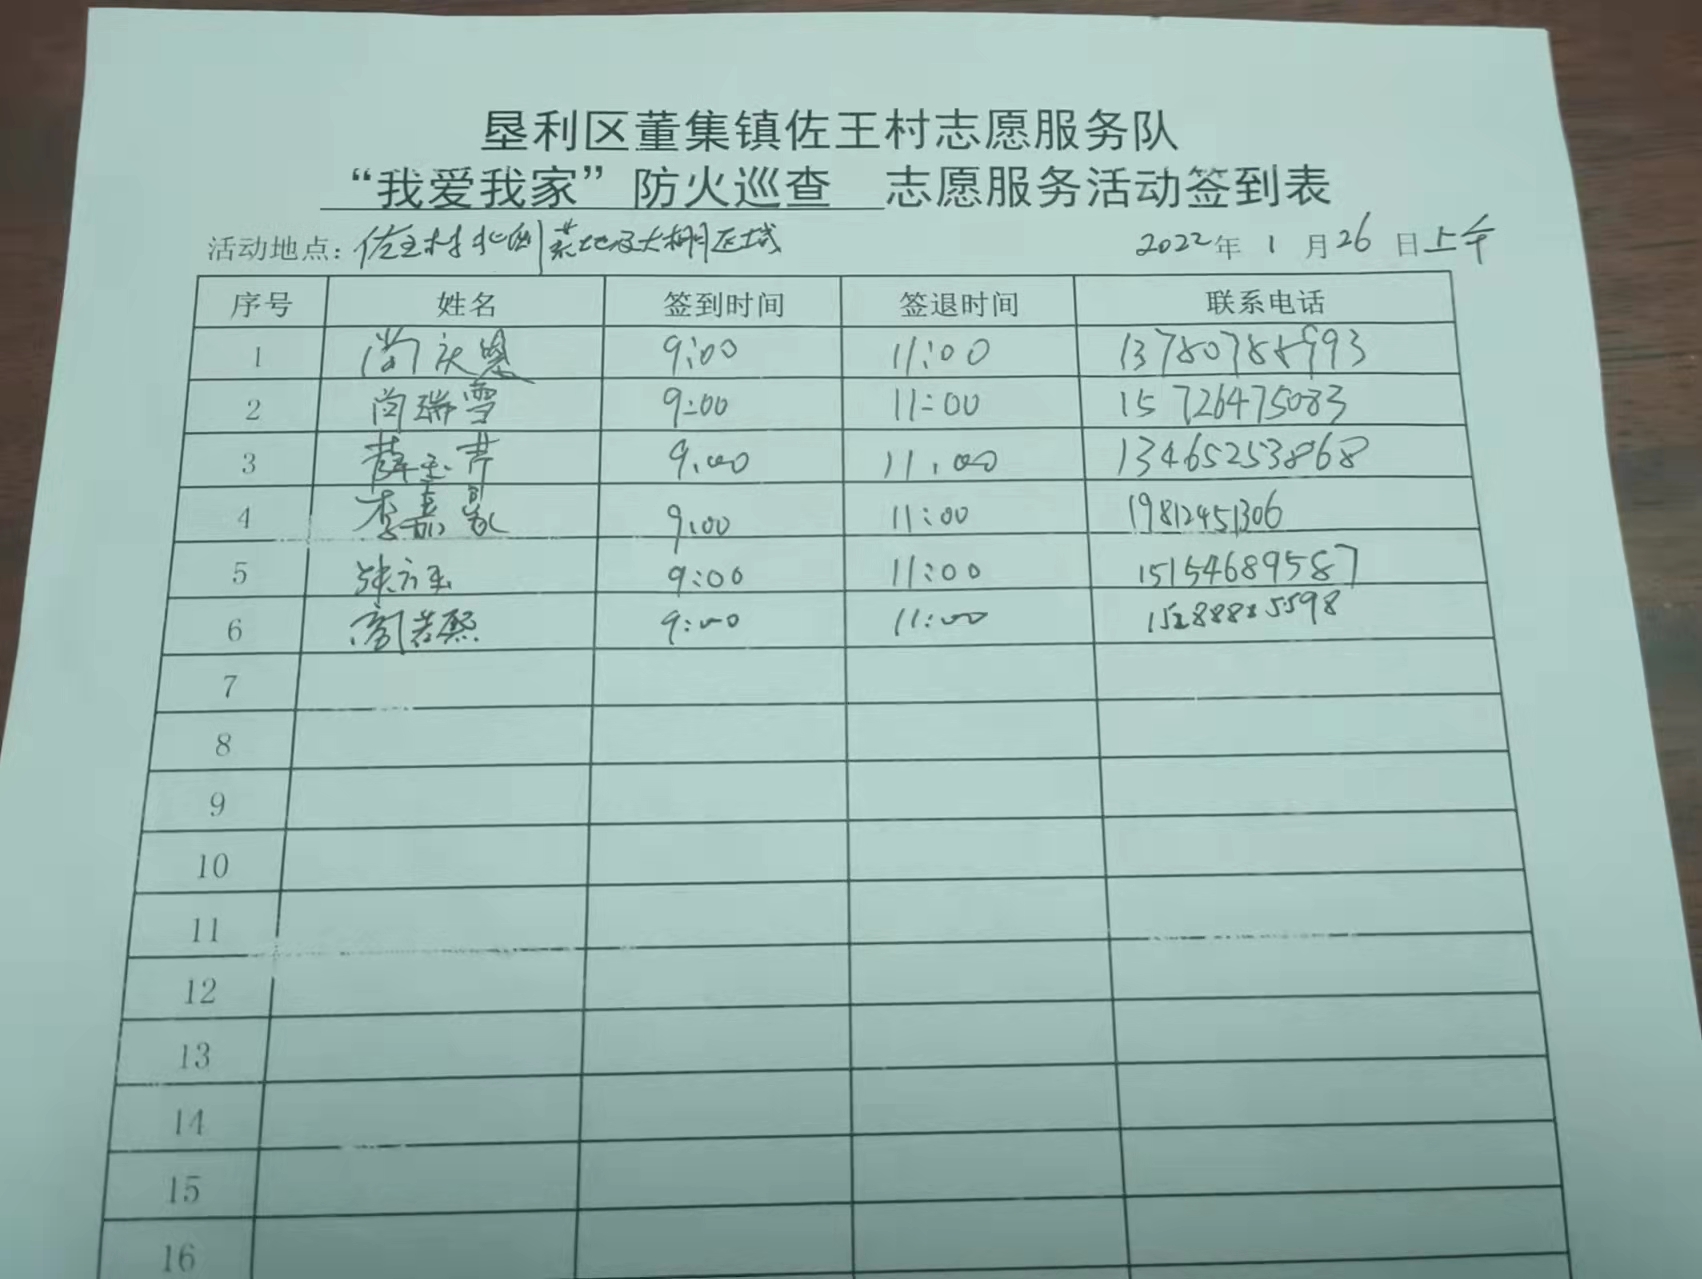 垦利区董集镇佐王村志愿服务队
“我爱我家”防火巡查 志愿服务活动签到表
活动地点：佐王村北侧荒地及大棚区域 2022年1月26日上午
序号 姓名 签到时间 签退时间 联系电话
1 尚庆恩 9:00 11:00 13780788993
2 尚瑞雪 9:00 11:00 15726475083
3 薛玉芹 9:00 11:00 13465253868
4 李嘉晟 9:00 11:00 19812451306
5 张方玉 9:00 11:00 15154689587
6 阎若熙 9:00 11:00
7
8
9
10
11
12
13
14
15
16